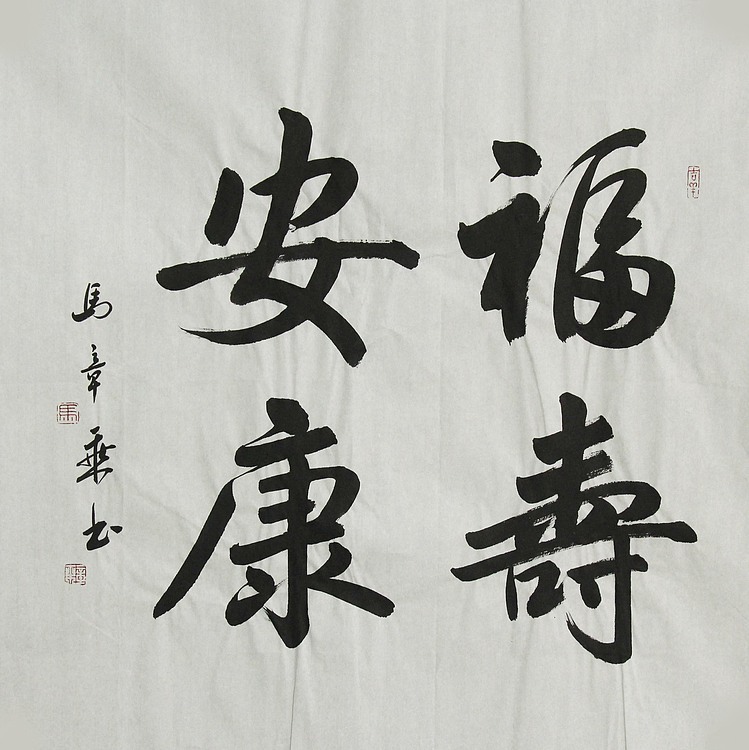 福壽
安康
馬章乘书
馬